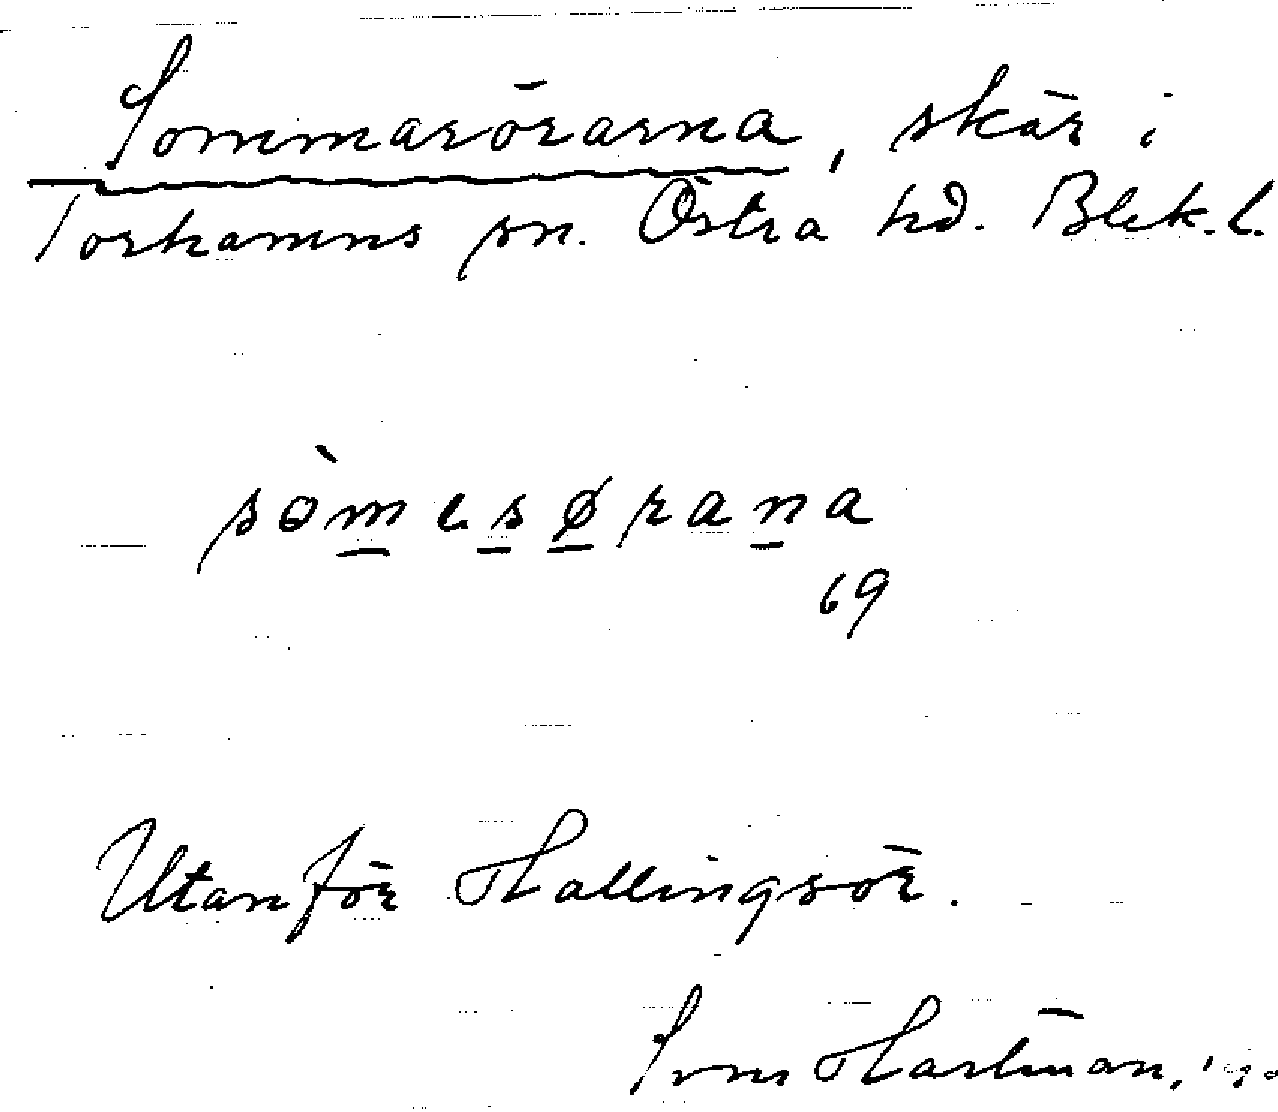 Sommarörarna, skär i
Torhamns sn. Östra hd. Blek. l.
sòmesørana
69
Utanför Hallingsör.
Hartman,